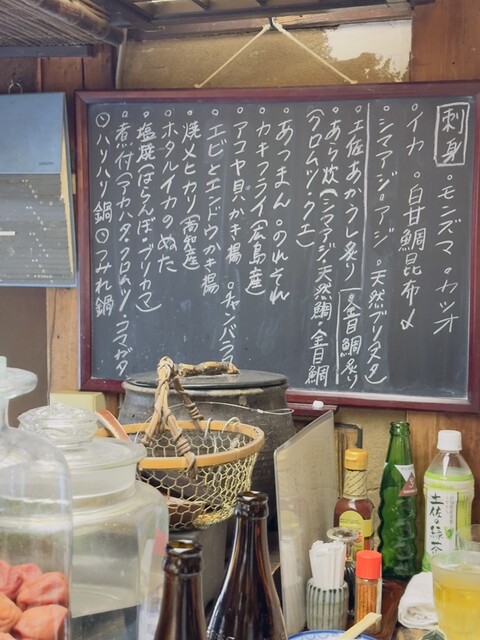 刺身
。モンズマ 。カツオ
。イカ 。白甘鯛昆布〆
。シマアジ・アジ 。天然ブリ(スタ)
。土佐あかうし炙り
。金目鯛炙り
。あら炊(シマアジ・天然鯛・金目鯛
(クロムツ・クエ)
。あつまん 。のれそれ
。カキフライ(広島産)
。アコヤ貝かき揚 。チャンバラ
。エビとエンドウかき揚
。焼メヒカリ(高知産)
。ホタルイカのぬた
。塩焼(はらんぼ・ブリカマ)
。煮付(アカハタ・クロムツ・コマガタ
。ハリハリ鍋 。つみれ鍋
土佐の緑茶